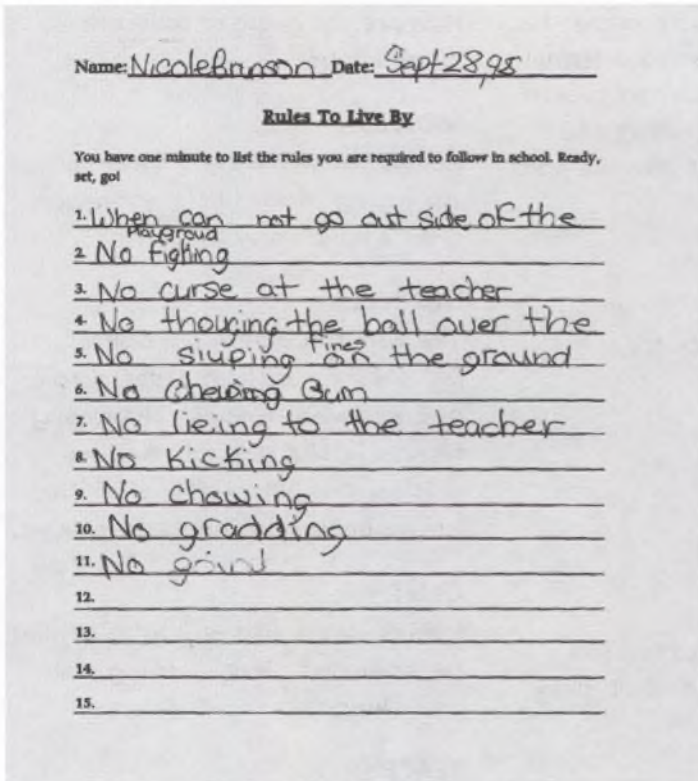 Name: Nicole Branson Date: Sept 28, 98
Rules To Live By
You have one minute to list the rules you are required to follow in school. Ready,
set, go!
1. When can not go out side of the
Playgroud
2. No fighing
3. No curse at the teacher
4. No thouging the ball over the
fines
5. No sluping on the ground
6. No Chewing Gum
7. No lieing to the teacher
8. No Kicking
9. No chowing
10. No gradding
11. No
12.
13.
14.
15.